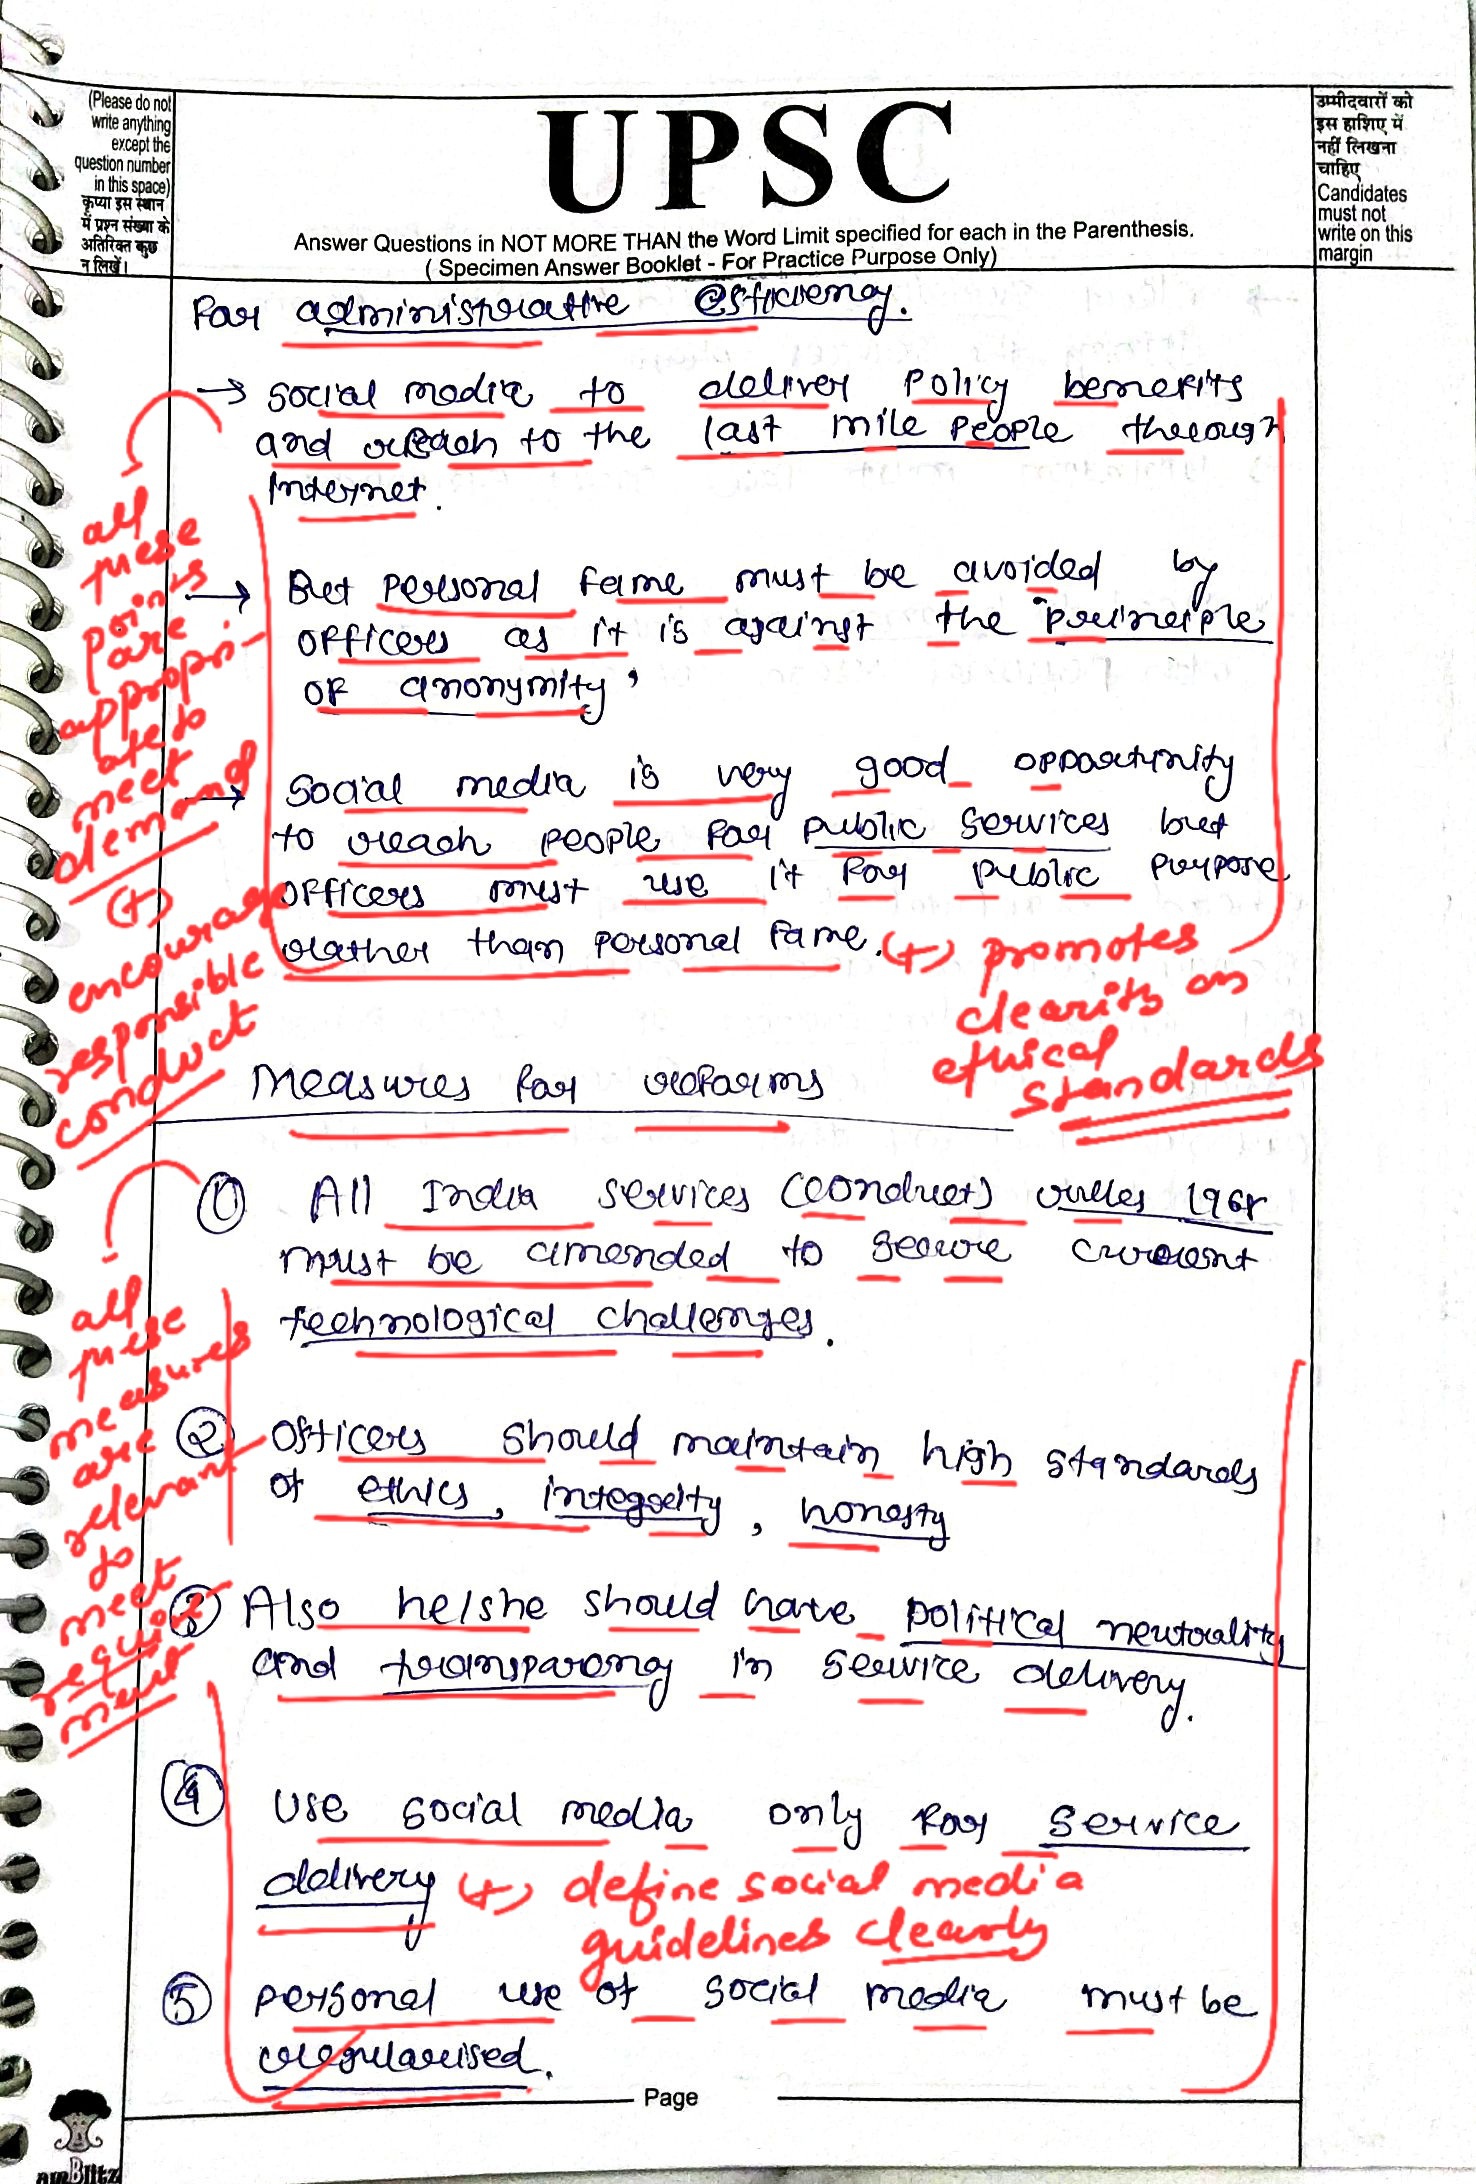 (Please do not
write anything
except the
question number
in this space)
कृप्या इस स्थान
में प्रश्न संख्या के
अतिरिक्त कुछ
न लिखें।
UPSC
Answer Questions in NOT MORE THAN the Word Limit specified for each in the Parenthesis.
( Specimen Answer Booklet - For Practice Purpose Only)
उम्मीदवारों को
इस हाशिए में
नहीं लिखना
चाहिए
Candidates
must not
write on this
margin
For administrative efficiency.
→ Social media to deliver policy benefits
and reach to the last mile people through
internet.
→ But personal fame must be avoided by
officers as it is against the "principle
of anonymity'
→ Social media is very good opportunity
to reach people for public services but
officers must use it for public purpose
rather than personal fame.
all
these
points
are
appropri-
ate to
meet
demand of
(+)
encourage
responsible
conduct
(+) promotes
clearity on
ethical
standards
Measures for reforms
① All India services (conduct) rules 1968
must be amended to secure current
technological challenges.
② Officers should maintain high standards
of ethics, integrity, honesty
③ Also he/she should have political neutrality
and transparency in service delivery.
④ Use social media only for service
delivery
(+) define social media
guidelines clearly
⑤ Personal use of social media must be
regularised.
all
these
measures
are
relevant
to
meet
require
ment
Page
airBlitz